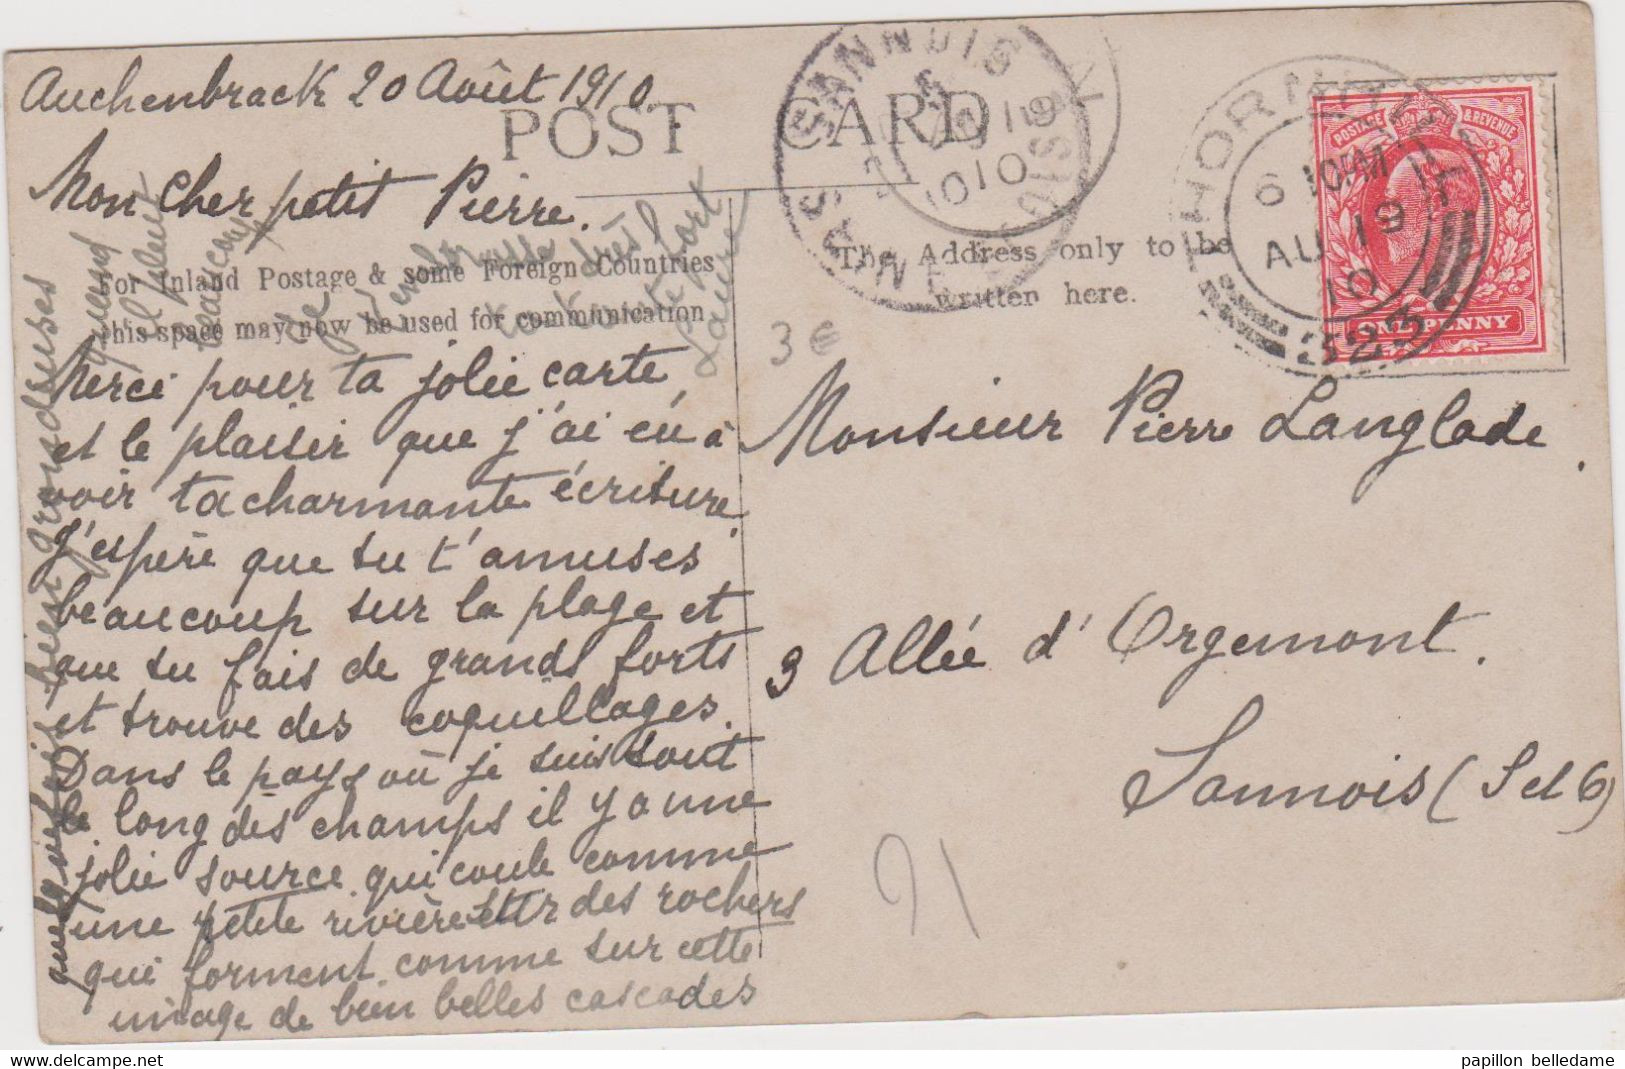 Auchenbrack 20 Août 1910
POST CARD
Mon cher petit Pierre.
For Inland Postage & some Foreign Countries
this space may now be used for communication
The Address only to be
written here.
Merci pour ta jolie carte
et le plaisir que j'ai eu à
voir ta charmante écriture.
J'espère que tu t'amuses
beaucoup sur la plage et
que tu fais de grands forts
et trouve des coquillages.
Dans le pays où je suis tout
le long des champs il y a une
jolie source qui coule comme
une petite rivière sur des rochers
qui forment comme sur cette
image de bien belles cascades
quelquefois bien grandes
quand
il pleut
beaucoup
Je
fort
Laure
Monsieur Pierre Langlade.
3 Allée d'Orgemont.
Sannois (S et O)
3 €
91
SANNOIS
SEINE
10
THORNHILL
6 10AM
AU 19
10
323
POSTAGE & REVENUE
ONE PENNY
papillon belledame